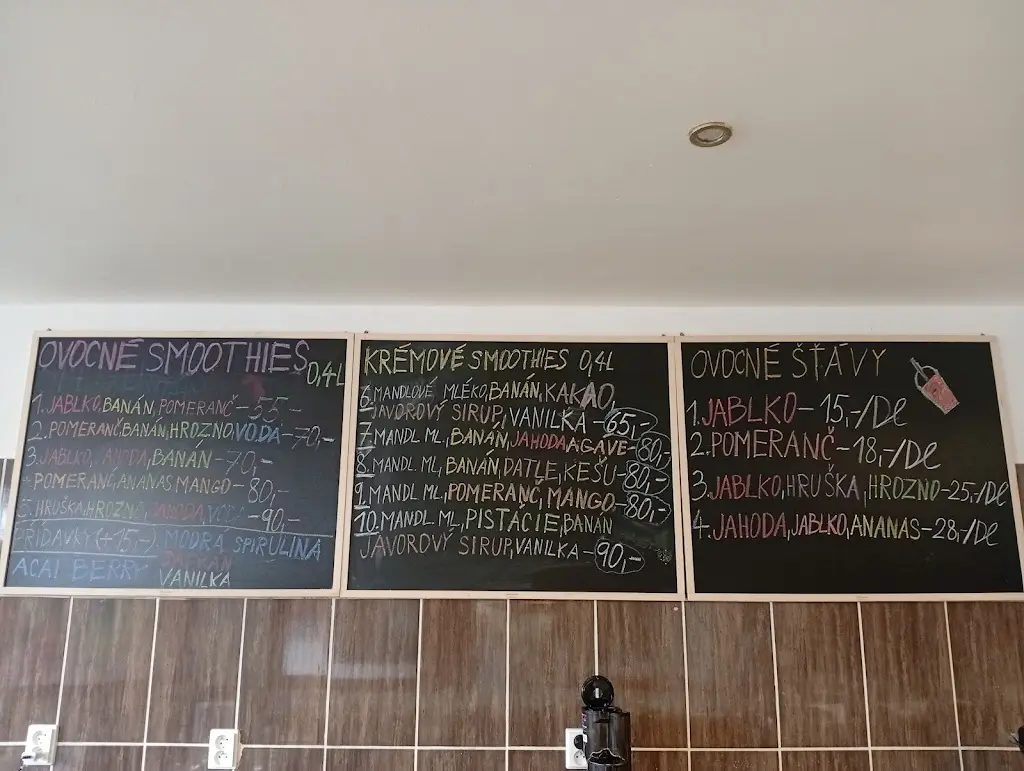 OVOCNÉ SMOOTHIES 0,4L
1. JABLKO, BANÁN, POMERANČ - 55,-
2. POMERANČ, BANÁN, HROZNO, VODA - 70,-
3. JABLKO, JAHODA, BANÁN - 70,-
POMERANČ, ANANAS, MANGO - 80,-
5. HRUŠKA, HROZNO, JAHODA, VODA - 90,-
PŘÍDAVKY (+15,-) MODRÁ SPIRULINA
ACAI BERRY
VANILKA
KRÉMOVÉ SMOOTHIES 0,4L
6. MANDLOVÉ MLÉKO, BANÁN, KAKAO,
JAVOROVÝ SIRUP, VANILKA - 65,-
7. MANDL ML, BANÁN, JAHODA AGAVE - 80,-
8. MANDL. ML, BANÁN, DATLE, KEŠU - 80,-
9. MANDL ML, POMERANČ, MANGO - 80,-
10. MANDL ML, PISTÁCIE, BANÁN
JAVOROVÝ SIRUP, VANILKA - 90,-
OVOCNÉ ŠŤÁVY
1. JABLKO - 15,-/DL
2. POMERANČ - 18,-/DL
3. JABLKO, HRUŠKA, HROZNO - 25,-/DL
4. JAHODA, JABLKO, ANANAS - 28,-/DL